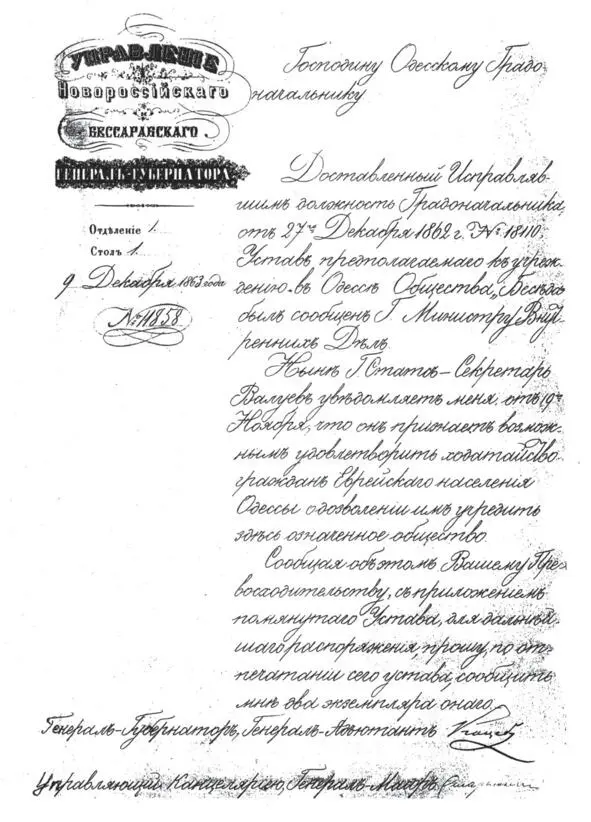 УПРАВЛЕНІЕ
Новороссійскаго
и
БЕССАРАБСКАГО
ГЕНЕРАЛЪ-ГУБЕРНАТОРА
Отдѣленіе 1.
Столъ 1.
9 Декабря 1863 года
№ 11858
Господину Одесскому Градо
начальнику
Доставленный Исправляв-
шимъ должность Градоначальника,
отъ 27го Декабря 1862 г. № 18110,
Уставъ предполагаемаго къ учреж-
денію въ Одессѣ Общества „Бесѣда"
былъ сообщенъ Г. Министру Внут-
реннихъ Дѣлъ.
Нынѣ Г. Статсъ-Секретарь
Валуевъ увѣдомляетъ меня, отъ 19го
Ноября, что онъ признаетъ возмож-
нымъ удовлетворить ходатайство
гражданъ Еврейскаго населенія
Одессы о дозволеніи имъ учредить
здѣсь означенное общество.
Сообщая объ этомъ Вашему Пре-
восходительству, съ приложеніемъ
помянутаго Устава, для дальнѣй-
шаго распоряженія, прошу, по от-
печатаніи сего устава, сообщить
мнѣ два экземпляра онаго.
Генералъ-Губернаторъ, Генералъ-Адъютантъ Коцебу
Управляющій Канцеляріею, Генералъ-Маіоръ